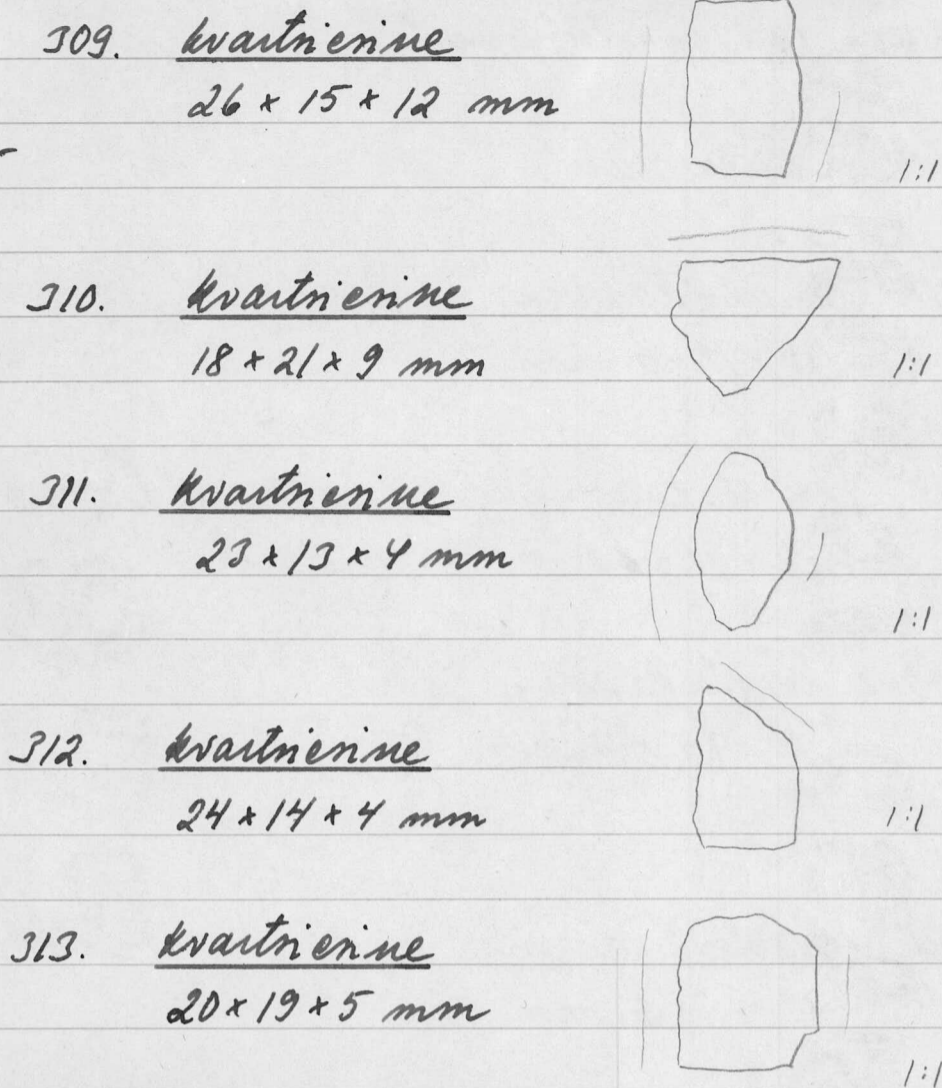 309. kvartsiesine
26 x 15 x 12 mm
1:1
310. kvartsiesine
18 x 21 x 9 mm
1:1
311. kvartsiesine
23 x 13 x 4 mm
1:1
312. kvartsiesine
24 x 14 x 4 mm
1:1
313. kvartsiesine
20 x 19 x 5 mm
1:1